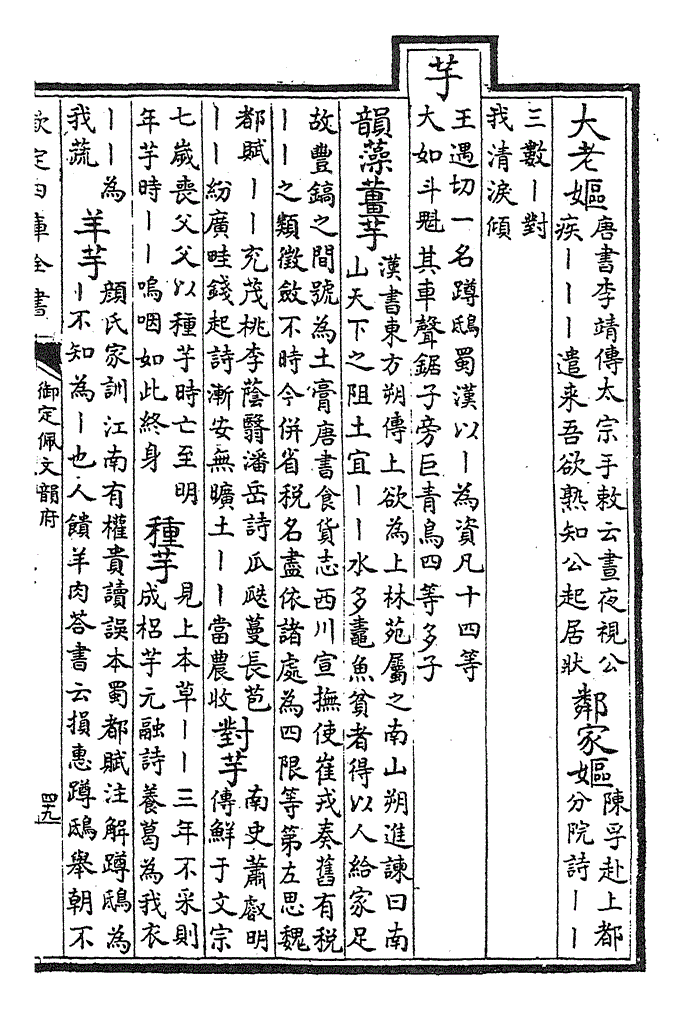 大老嫗
唐書李靖傳太宗手敕云晝夜視公
疾丨丨丨遣来吾欲熟知公起居狀
鄰家嫗
陳孚赴上都
分院詩丨丨
三數丨對
我清淚傾
芋
王遇切一名蹲鴟蜀漢以丨為資凡十四等
大如斗魁其車聲鋸子旁巨青烏四等多子
韻藻薑芋
漢書東方朔傳上欲為上林苑屬之南山朔進諫曰南
山天下之阻土宜丨丨水多鼃魚貧者得以人給家足
故豐鎬之間號為土膏唐書食貨志西川宣撫使崔戎奏舊有税
丨丨之類徵斂不時今併省税名盡依諸處為四限等第左思魏
都賦丨丨充茂桃李蔭翳潘岳詩瓜瓞蔓長苞
丨丨紛廣畦錢起詩漸安無曠土丨丨當農收
對芋
南史蕭叡明
傳鮮于文宗
七歲喪父父以種芋時亡至明
年芋時丨丨嗚咽如此終身
種芋
見上本草丨丨三年不采則
成梠芋元融詩養葛為我衣
丨丨為
我蔬
羊芋
顏氏家訓江南有權貴讀誤本蜀都賦注解蹲鴟為
丨不知為丨也人饋羊肉荅書云損惠蹲鴟舉朝不
欽定四庫全書
御定佩文韻府
四十九